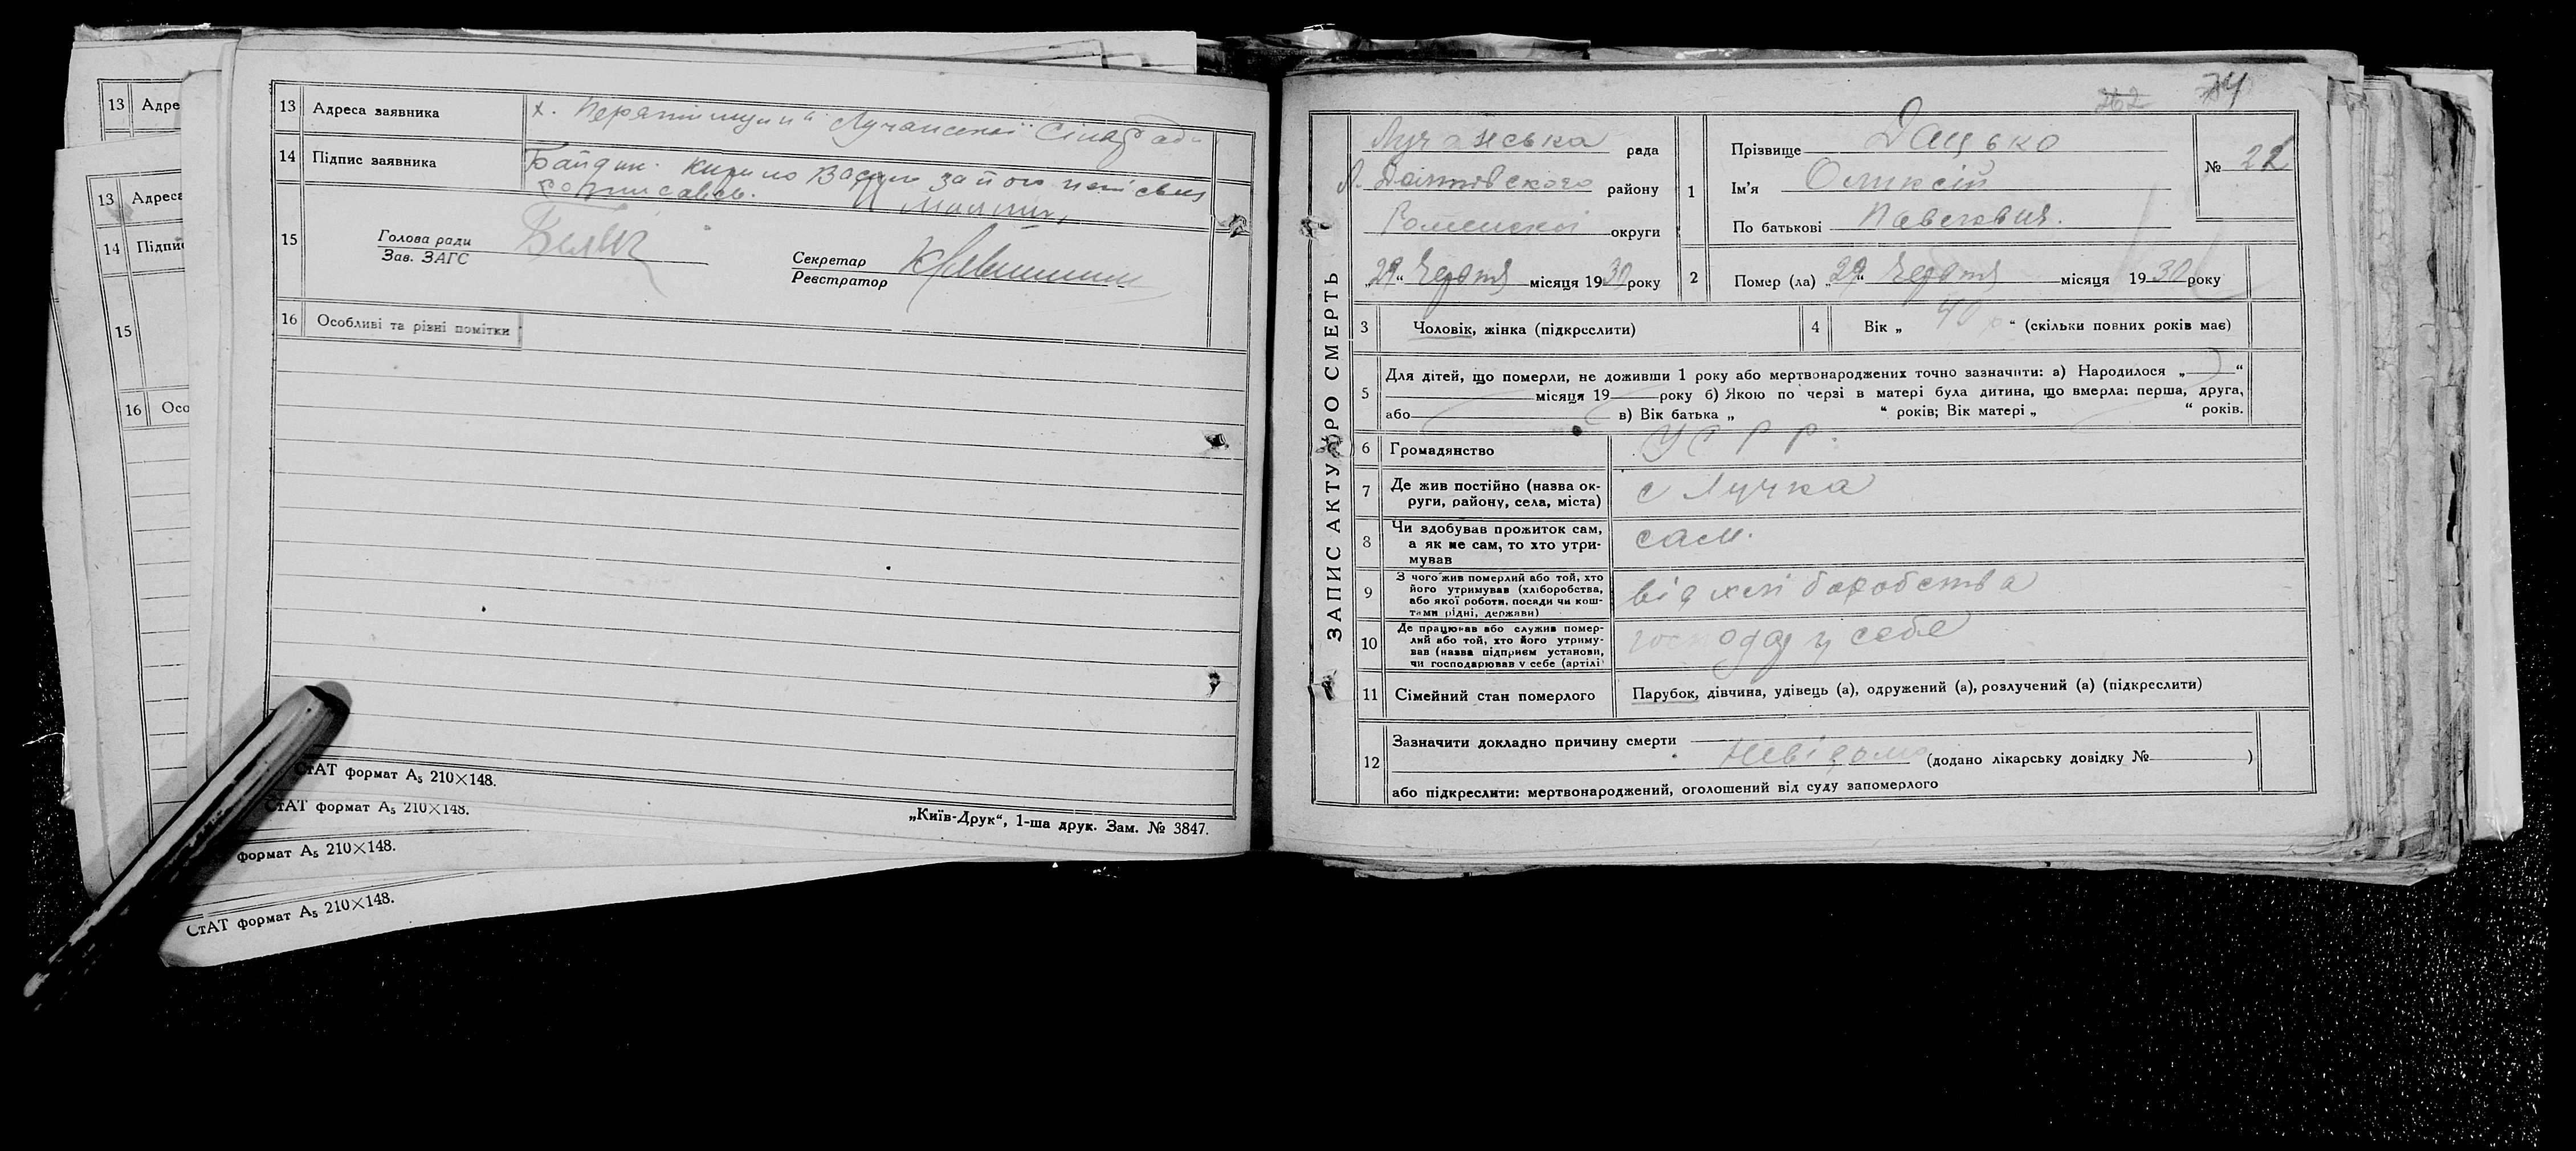 13 Адре
13 Адреса
14 Підпис
15
16 Осо
13 Адреса заявника х. Лучанської Сільради
14 Підпис заявника Кирило
росписавсь.
15 Голова ради
Зав. ЗАГС
Секретар
Реєстратор
16 Особливі та різні помітки
СтАТ формат А₅ 210×148.
СтАТ формат А₅ 210×148.
формат А₅ 210×148.
СтАТ формат А₅ 210×148.
„Київ-Друк“, 1-ша друк. Зам. № 3847.
262 74
ЗАПИС АКТУ ПРО СМЕРТЬ
Лучанська рада
району
Роменської округи
„29“ Червня місяця 1930 року
1 Прізвище Дацько
Ім'я Олексій
По батькові Павлович.
№ 22
2 Помер (ла) „29“ Червня місяця 1930 року
3 Чоловік, жінка (підкреслити)
4 Вік „40“ (скільки повних років має)
5 Для дітей, що померли, не доживши 1 року або мертвонароджених точно зазначити: а) Народилося „ “
місяця 19 року б) Якою по черзі в матері була дитина, що вмерла: перша, друга,
або в) Вік батька „ “ років; Вік матері „ “ років.
6 Громадянство УСРР.
7 Де жив постійно (назва ок-
руги, району, села, міста) с Лучка
8 Чи здобував прожиток сам,
а як не сам, то хто утри-
мував сам.
9 З чого жив померлий або той, хто
його утримував (хліборобства,
або якої роботи, посади чи кош-
тами рідні, держави) від хліборобства
10 Де працював або служив помер-
лий або той, хто його утриму-
вав (назва підприєм установи,
чи господарював у себе (артілі) господар у себе
11 Сімейний стан померлого Парубок, дівчина, удівець (а), одружений (а), розлучений (а) (підкреслити)
12 Зазначити докладно причину смерти
Невідомо (додано лікарську довідку № )
або підкреслити: мертвонароджений, оголошений від суду запомерлого